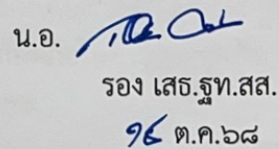 น.อ.
รอง เสธ.ฐท.สส.
๑๕ ต.ค.๖๘